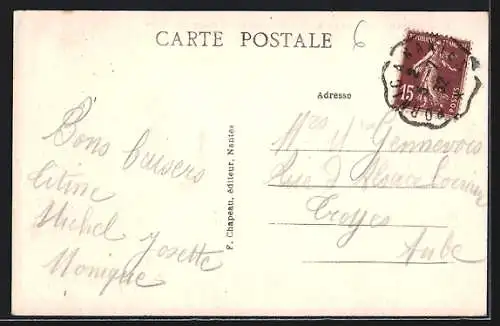 CARTE POSTALE
6
Adresse
Bons baisers
Titine
Michel Josette
Monique
F. Chapeau, éditeur, Nantes
Gennevois
Rue d'Alsace Lorraine
Troyes
Aube
15
POSTES